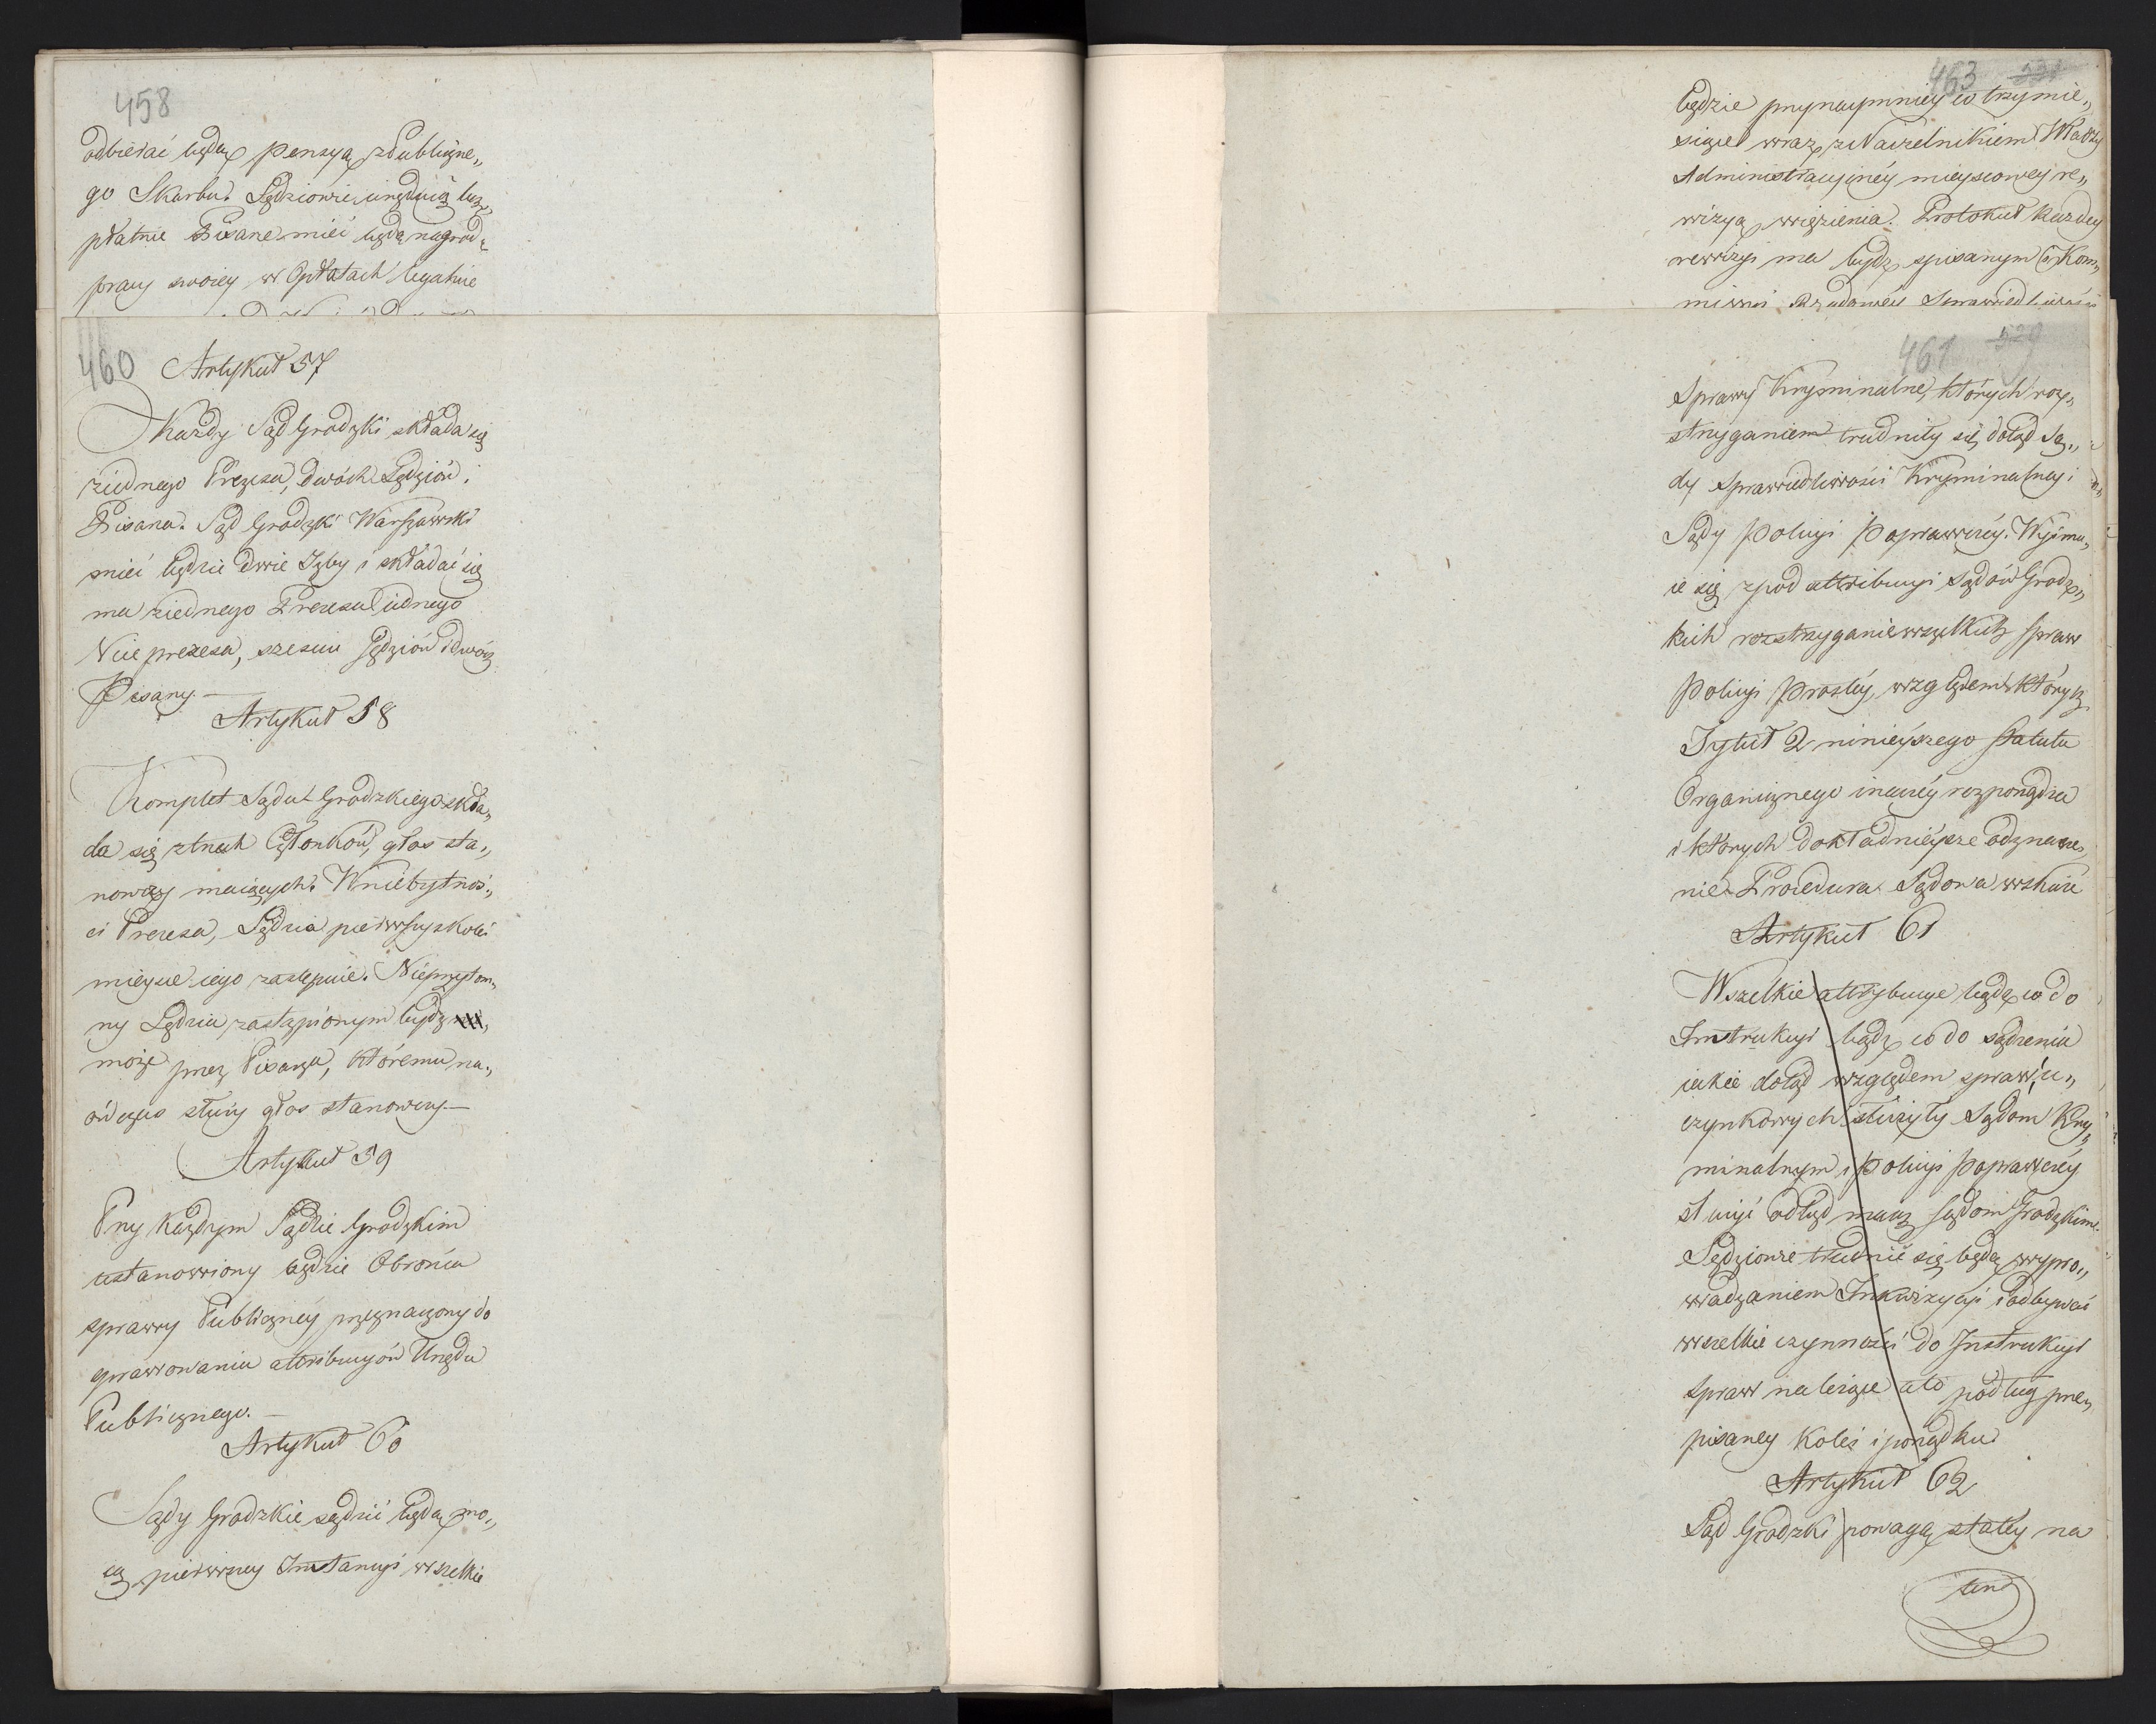 458
odbierać będą pensyą z Publiczne„
go Skarbu. Sędziowie urzędnicy bez„
płatnie Pisarze mieć będą nagrodę
pracy swoiey w Opłatach legalnie
460
Artykuł 57
Każdy Sąd Grodzki składa się
ziednego Prezesa, dwóch Sędziów i
Pisarza. Sąd Grodzki Warszawski
mieć będzie dwie Izby i składać się
ma ziednego Prezesa iednego
Viceprezesa, sześciu Sędziów i dwóch
Pisarzy. —
Artykuł 58
Komplet Sądu Grodzkiego skła„
da się z trzech Członków, głos sta„
nowczy maiących. W niebytnoś„
ci Prezesa, Sędzia pierwszy z kolei
mieysce iego zastępuie. Nieprzytom„
ny Sędzia zastąpionym bydź
może przez Pisarza, któremu na„
ówczas służy głos stanowczy —
Artykuł 59
Przy każdym Sądzie Grodzkim
ustanowiony będzie Obrońca
sprawy Publiczney przeznaczony do
sprawowania attribucyów Urzędu
Publicznego. —
Artykuł 60
Sądy Grodzkie sądzić będą mo„
cą pierwszey Instancyi wszelkie
463 531
będzie przynaymniey co trzy mie„
siące wraz z Naczelnikiem Władzy
Administracyiney mieyscowey re„
wizyą więzienia. Protokuł każdey
rewizyi ma bydź spisanym i Kom„
missyi Rządowéy Sprawiedliwości
461 529
Sprawy Kryminalne, których roz„
strzyganiem trudniły się dotąd Są„
dy Sprawiedliwości Kryminalney i
Sądy Policyi Poprawczéy. Wyimu„
ie się z pod attribucyi Sądów Grodz„
kich rozstrzyganie wszelkich spraw
Policyi Prostéy, względem których
Tytuł 2 ninieyszego Statutu
Organicznego inaczéy rozporządza
i których dokładnieysze odznacze„
nie Procedura Sądowa wskaże
Artykuł 61
Wszelkie attrybucye bądź co do
Instrukcyi bądź co do sądzenia
iakie dotąd względem spraw u„
czynkowych służyły Sądom Kry„
minalnym i Policyi Poprawczéy
służyć odtąd maią Sądom Grodzkim.
Sędziowie trudnić się będą wypro„
wadzaniem Inkwizycyi i odbywać
wszelkie czynności do Instrukcyi
spraw należące a to podług prze„
pisaney kolei i porządku
Artykuł 62
Sąd Grodzki powagę stałey na